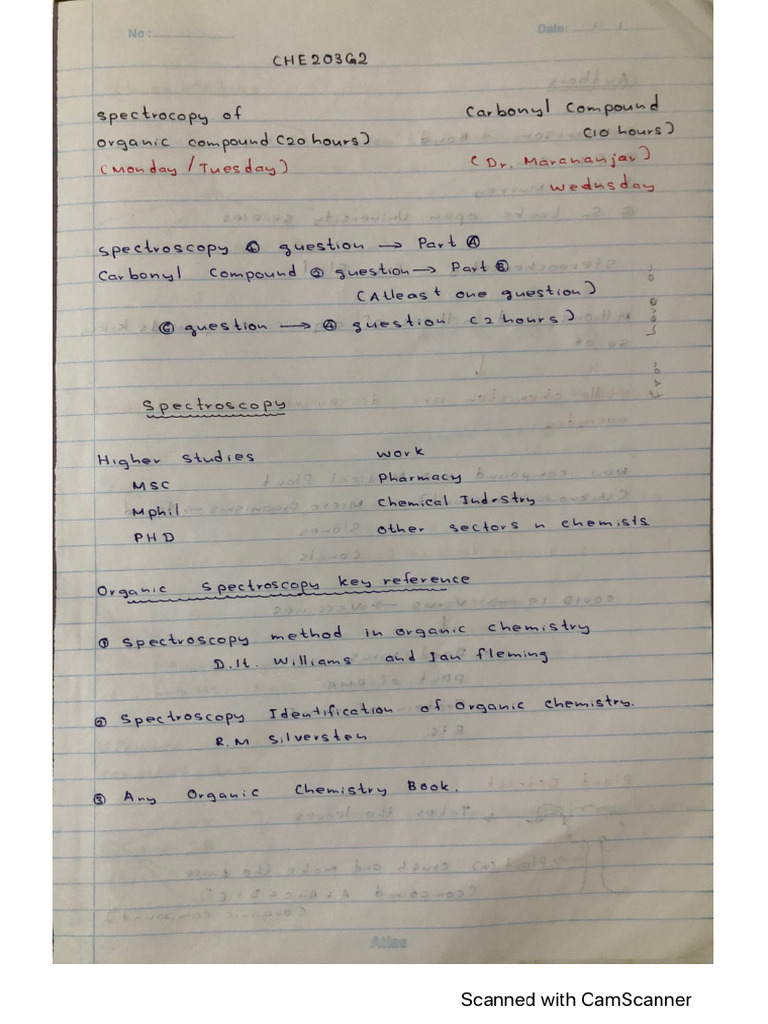 No :
Date: / /
CHE203G2
spectrocopy of
organic compound (20 hours)
(Monday / Tuesday)
Carbonyl Compound
(10 hours)
(Dr. Marananjar)
Wednsday
spectroscopy ④ question → Part Ⓐ
Carbonyl compound ② question → Part Ⓑ
(Atleast one question)
⑥ question → ④ question (2 hours)
Spectroscopy
Higher studies
MSC
Mphil
PHD
work
Pharmacy
Chemical Indrstry
other sectors n chemists
Organic spectroscopy key reference
① spectroscopy method in organic chemistry
D.H. Williams and Ian fleming
② Spectroscopy Identification of organic chemistry.
R.M Silversten
③ Any Organic Chemistry Book.
Atlas
Scanned with CamScanner